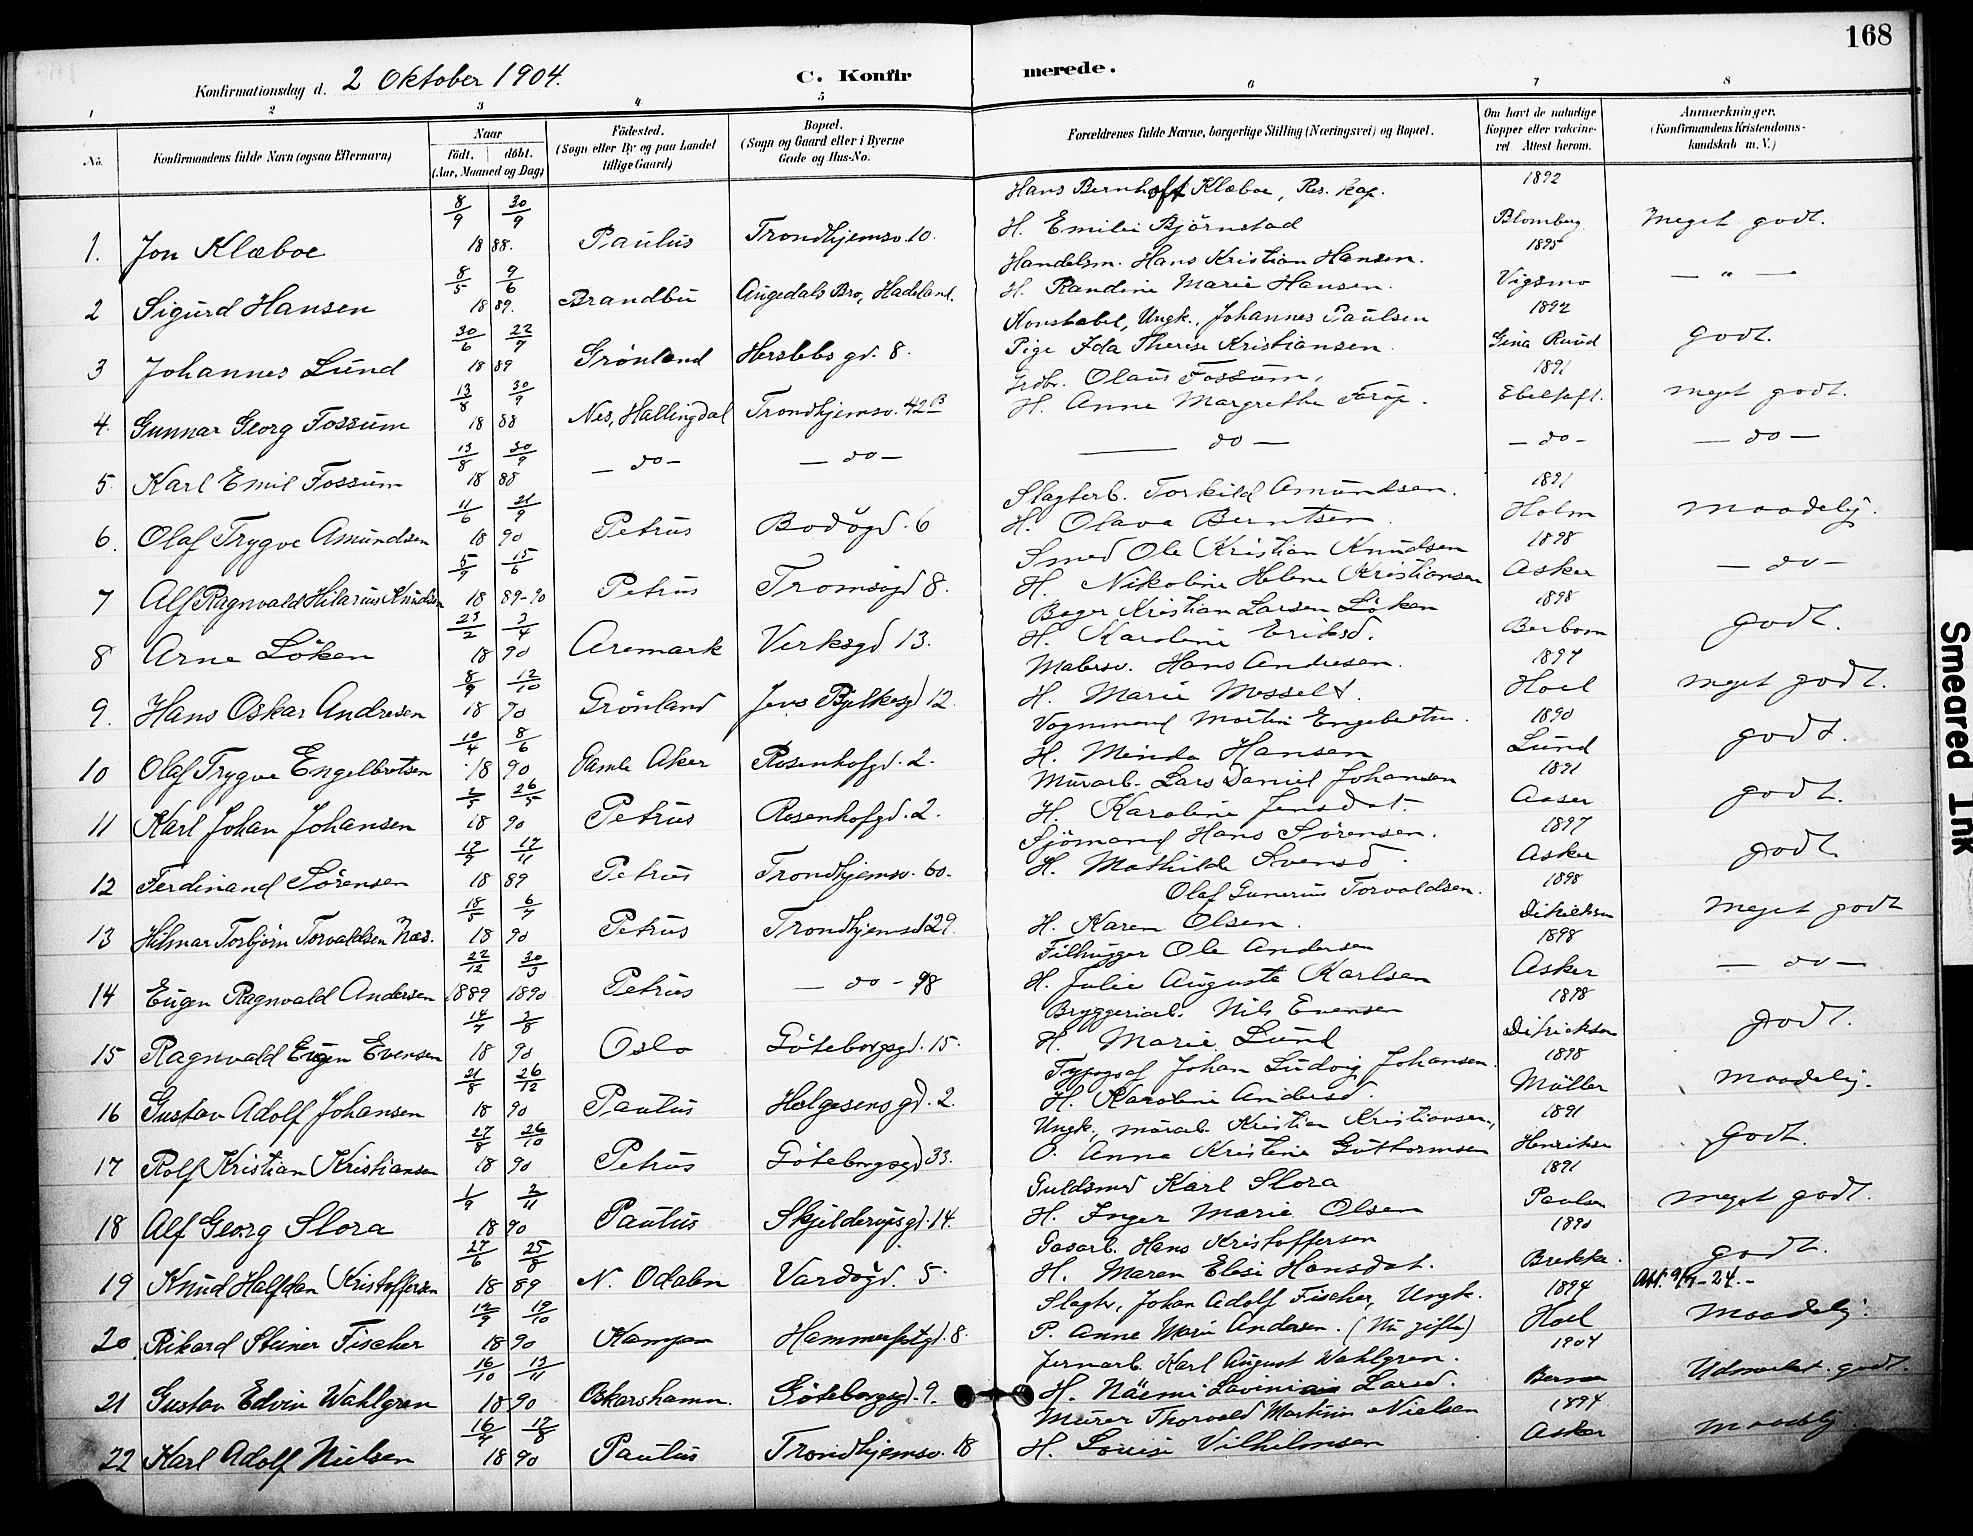 168
Konfirmationsdag d. 2 Oktober 1904.
C. Konfirmerede.
1 2 3 4 5 6 7 8
No. Konfirmandens fulde Navn (ogsaa Efternavn) Naar födt. döbt. (Aar, Maaned og Dag) Födested. (Sogn eller By og paa Landet tillige Gaard) Bopæl. (Sogn og Gaard eller i Byerne Gade og Hus-No. Forældrenes fulde Navne, borgerlige Stilling (Næringsvei) og Bopæl. Om havt de naturlige Kopper eller vakcineret Attest herom. Anmærkninger. (Konfirmandens Kristendomskundskab m. V.)
Hans Bernhoft Klæboe, Res. kap. 1892
1. Jon Klæboe 8/9 30/9 1888. Paulus Trondhjemsv. 10. H. Emilie Björnstad Blomberg Meget godt.
Handelsm. Hans Kristian Hansen. 1895
2 Sigurd Hansen 8/5 9/6 1889. Brandbu Augedals Bro, Hadeland. H. Randine Marie Hansen. Vigsmo — " —
Konstabel, Ungk. Johannes Paulsen 1892
3 Johannes Lund 30/6 22/7 1889 Grönland Herslebs gd. 8. Pige Ida Therese Kristiansen. Gina Ruud godt.
Grdbr. Olaus Fossum, 1891
4. Gunnar Georg Fossum 13/8 30/9 1888 Nes, Hallingdal Trondhjemsv. 42B H. Anne Margrethe Ebeltoft. meget godt.
5 Karl Emil Fossum 13/8 30/9 1888 — do — — do — — do — — do — — do —
Slagterb. Torkild Amundsen. 1891
6. Olaf Trygve Amundsen 11/6 21/9 1890 Petrus Bodögd. 6 H. Olava Berntsen. Holm maadelig.
Smed Ole Kristian Knudsen 1898
7 Alf Ragnvald Hilarius Knudsen 5/9 15/6 1889-90 Petrus Tromsögd 8. H. Nikoline Helene Kristiansen Asker — do —
Bager Kristian Larsen Löken 1898
8 Arne Löken 23/2 3/4 1890 Aremark Verksgd 13. H. Karoline Eriksd. Berbom godt.
Malersv. Hans Andresen. 1897
9. Hans Oskar Andresen 8/9 12/10 1890 Grönland Jens Bjelkesgd 12. H. Marie Messelt. Hoel meget godt.
Vognmand Martin Engebretsen. 1890
10 Olaf Trygve Engelbretsen 10/4 8/6 1890 Gamle Aker Rosenhofgd. 2. H. Minda Hansen Lund godt.
Murarb. Lars Daniel Johansen 1891
11 Karl Johan Johansen 2/5 26/5 1890 Petrus Rosenhofgd. 2. H. Karoline Jensdat. Aaser godt.
Sjömand Hans Sörensen. 1897
12 Ferdinand Sörensen 1889 Petrus Trondhjemsv. 60. H. Mathilde Svensd. Asker godt
Olaf Gunerius Torvaldsen. 1898
13 Hilmar Torbjörn Torvaldsen Næs. 18/5 6/7 1890 Petrus Trondhjemsv 29. H. Karen Olsen. Ditrichsen Meget godt
Filhugger Ole Andersen 1898
14 Eugen Ragnvald Andersen 22/12 1889 30/3 1890 Petrus — do — 98 H. Julie Auguste Karlsen Asker — do —
Bryggeriarb. Nils Evensen 1898
15 Ragnvald Eugen Evensen 14/7 3/8 1890 Oslo Göteborgsgd. 15. H. Marie Lund Ditrichsen godt.
Typograf Johan Ludvig Johansen. 1898
16 Gustav Adolf Johansen 21/8 26/12 1890 Paulus Helgesens gd. 2. H. Karoline Andersd. Müller maadelig.
Ungk., murarb. Kristian Kristiansen, 1891
17 Rolf Kristian Kristiansen 27/8 26/10 1890 Petrus Göteborgsgd 33. P. Anna Kristine Guttormsen Henriksen godt.
Guldsmed Karl Slora 1891
18 Alf Georg Slora 1/9 2/11 1890 Paulus Skjelderupsgd. 14. H. Inger Marie Olsen Paulsen meget godt.
Gasarb. Hans Kristoffersen 1890
19 Knud Halfdan Kristoffersen 27/6 25/8 1889 N. Odalen Vardögd. 5. H. Maren Elise Hansdat. Brekke godt.
Slagter, Johan Adolf Fischer, Ungk. 1894 Att. 9/9-24.-
20 Rikard Steiner Fischer 1890 Kampen Hammerfestgd. 8. P. Anne Marie Andersen. (Nu gift) Hoel Maadelig.
Jernarb. Karl August Wahlgren. 1904
21 Gustav Edvin Wahlgren 16/10 13/11 1890 Oskarshamn. Göteborgsgd. 9. H. Näemi Larsd. Udmærket godt.
Murer Thorvald Martinius Nielsen 1894
22 Karl Adolf Nielsen 16/4 17/8 1890 Paulus Trondhjemsv. 18 H. Louise Vilhelmsen Asker Maadelig
Smeared Ink